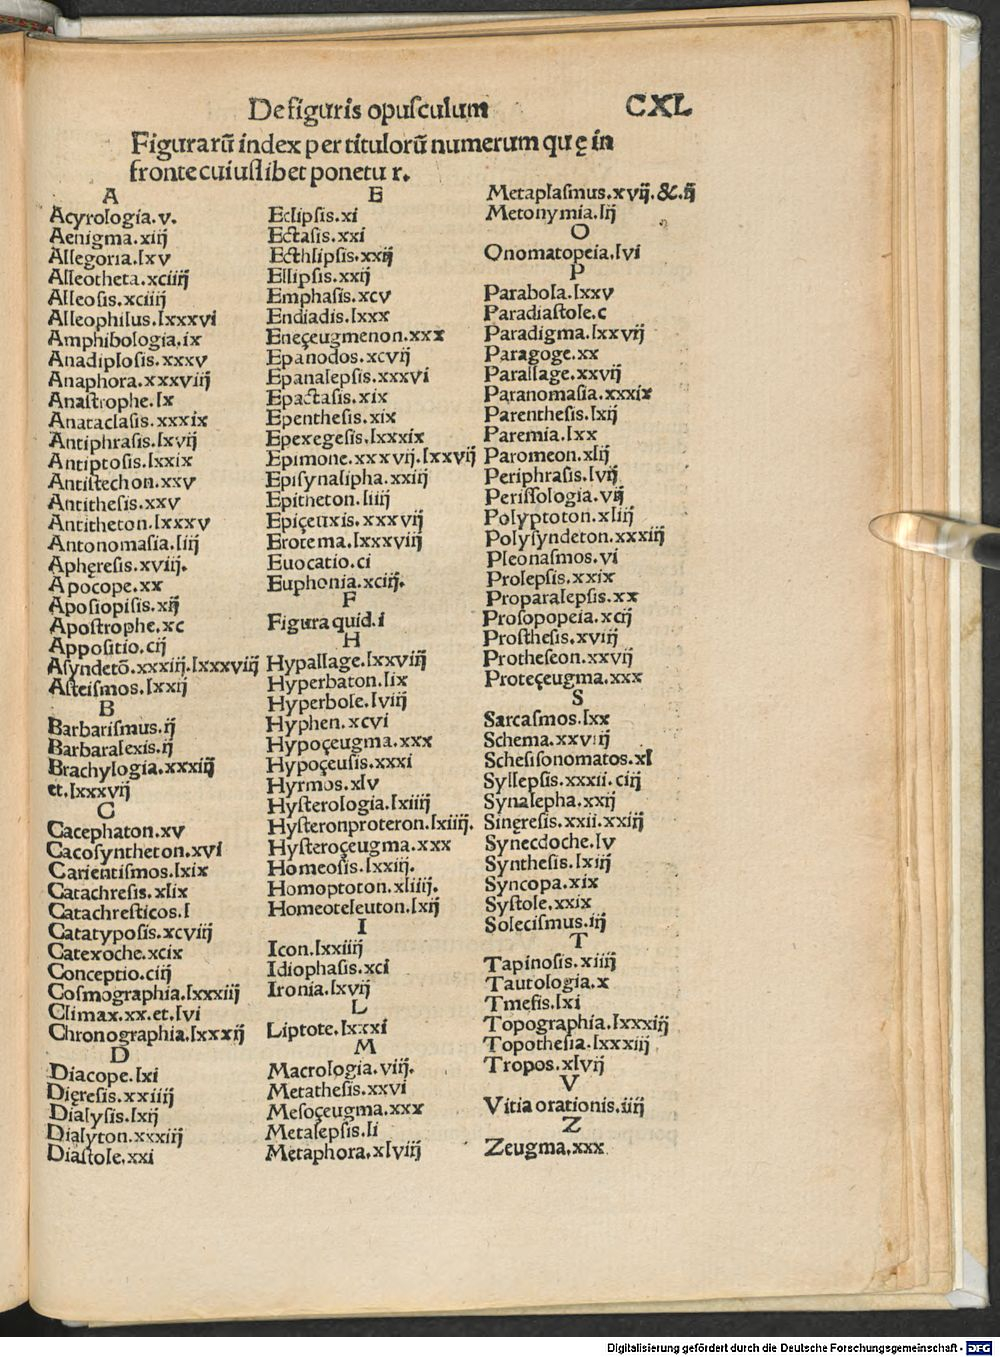 De figuris opusculum CXL
Figurarū index per titulorū numerum quę in
fronte cuiuslibet ponetur.
A
Acyrologia.v.
Aenigma.xiij
Allegoria.lxv
Alleotheta.xciiij
Alleosis.xciiij
Alleophilus.lxxxvi
Amphibologia.ix
Anadiplosis.xxxv
Anaphora.xxxviij
Anastrophe.lx
Anataclasis.xxxix
Antiphrasis.lxvij
Antiptosis.lxxix
Antistechon.xxv
Antithesis.xxv
Antitheton.lxxxv
Antonomasia.liij
Apheręsis.xviij.
Apocope.xx
Aposiopisis.xij
Apostrophe.xc
Appositio.cij
Asyndetō.xxxiij.lxxxviij
Asteismos.lxxij
B
Barbarismus.ij
Barbaralexis.ij
Brachylogia.xxxiij
et.lxxxvij
C
Cacephaton.xv
Cacosyntheton.xvi
Carientismos.lxix
Catachresis.xlix
Catachresticos.l
Catatyposis.xcviij
Catexoche.xcix
Conceptio.ciij
Cosmographia.lxxxiij
Climax.xx.et.lvi
Chronographia.lxxxij
D
Diacope.lxi
Dięresis.xxiiij
Dialysis.lxij
Dialyton.xxxiij
Diastole.xxi
E
Eclipsis.xi
Ectasis.xxi
Ecthlipsis.xxij
Ellipsis.xxij
Emphasis.xcv
Endiadis.lxxx
Eneçeugmenon.xxx
Epanodos.xcvij
Epanalepsis.xxxvi
Epactasis.xix
Epenthesis.xix
Epexegesis.lxxxix
Epimone.xxxvij.lxxvij
Episynalipha.xxiij
Epitheton.liiij
Epiçeuxis.xxxvij
Erotema.lxxxviij
Euocatio.ci
Euphonia.xciij.
F
Figura quid.i
H
Hypallage.lxxviij
Hyperbaton.lix
Hyperbole.lviij
Hyphen.xcvi
Hypoçeugma.xxx
Hypoçeusis.xxxi
Hyrmos.xlv
Hysterologia.lxiiij
Hysteronproteron.lxiiij.
Hysteroçeugma.xxx
Homeosis.lxxiij.
Homoptoton.xliiij.
Homeoteleuton.lxij
I
Icon.lxxiiij
Idiophasis.xci
Ironia.lxvij
L
Liptote.lxxxi
M
Macrologia.viij.
Metathesis.xxvi
Mesoçeugma.xxx
Metalepsis.li
Metaphora.xlviij
Metaplasmus.xvij.&.ij
Metonymia.lij
O
Onomatopeia.lvi
P
Parabola.lxxv
Paradiastole.c
Paradigma.lxxvij
Paragoge.xx
Parallage.xxvij
Paranomasia.xxxix
Parenthesis.lxij
Paremia.lxx
Paromeon.xlij
Periphrasis.lvij
Perissologia.vij
Polyptoton.xliij
Polysyndeton.xxxiij
Pleonasmos.vi
Prolepsis.xxix
Proparalepsis.xx
Prosopopeia.xcij
Prosthesis.xviij
Protheseon.xxvij
Proteçeugma.xxx
S
Sarcasmos.lxx
Schema.xxviij
Schesisonomatos.xl
Syllepsis.xxxii.ciij
Synalepha.xxij
Sineręsis.xxii.xxiij
Synecdoche.lv
Synthesis.lxiij
Syncopa.xix
Systole.xxix
Solecismus.iij
T
Tapinosis.xiiij
Tautologia.x
Tmesis.lxi
Topographia.lxxxiij
Topothesia.lxxxiij
Tropos.xlvij
V
Vitia orationis.iiij
Z
Zeugma.xxx
Digitalisierung gefördert durch die Deutsche Forschungsgemeinschaft - DFG